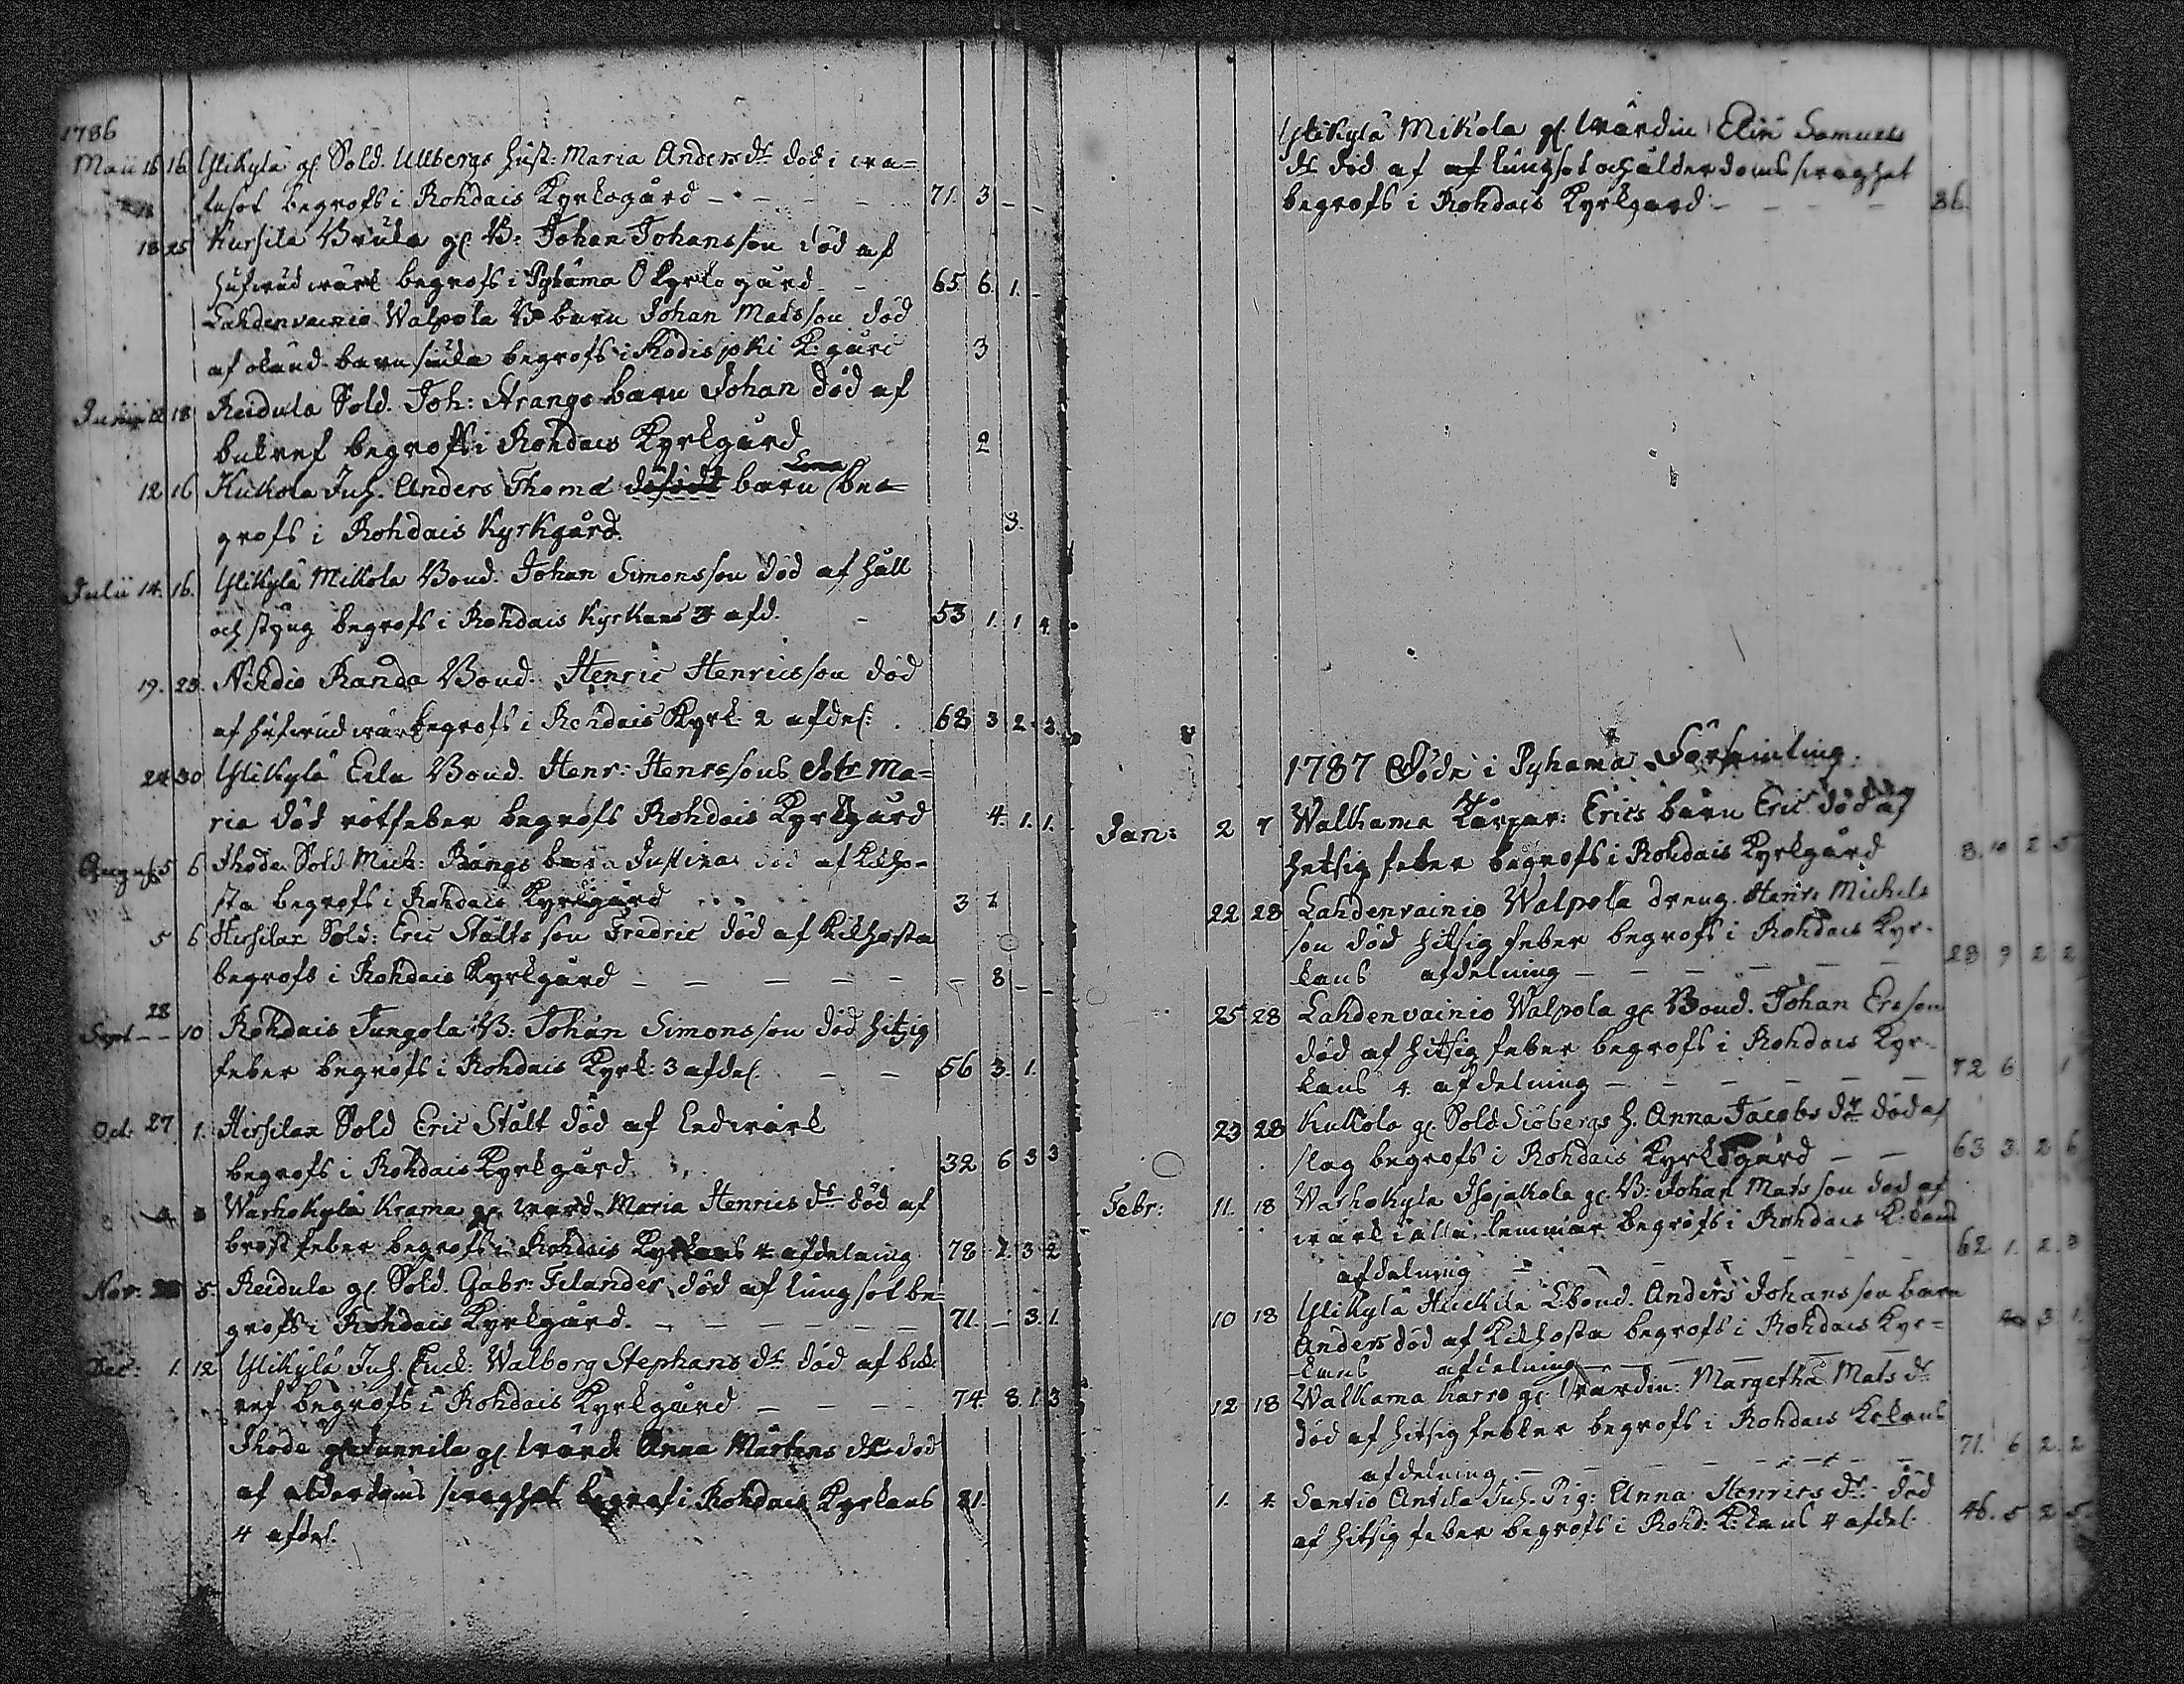 1786
Maii 15 16 Ylikylä gl. Sold. Ullbergs hust: Maria Anders dr död i wa=
tusot begrofs i Rohdais Kyrkogård - - - 71. 3 - -
18 25 Kursila Bruka gl. B: Johan Johansson död af
hufwud wärk begrofs i Pyhäma Ö Kyrko gård - - 65. 6. 1. -
Lahdenvainio Walpola B barn Johan Matsson död
af okänd barn siuka begrofs i Rodisjoki K: gård 3
Junii 12 18 Reidula Sold. Joh: Strangs barn Johan död af
bukref begrofs i Rohdais Kyrkgård 2
Lena
12 16 Kukola Inh. Anders Thomæ dödfödt barn be=
grofs i Rohdais Kyrkgård. 3.
Julii 14. 16. Ylikylä Mikola Bond. Johan Simonsson död af håll
och styng begrofs i Rohdais Kyrkans 4 afd. - 53 1. 1. 4.
19. 23. Nihdiö Randa Bond. Henric Henricsson död
af hufwud wärk begrofs i Rohdais Kyrk: 2 afdel: 68 3 2 3.
24 30 Ylikylä Eila Bond. Henr: Henrssons dotr Ma=
ria död rötfeber begrofs Rohdais Kyrkgård 4. 1. 1.
August 5 6 Ihode Sold Mich: Rångs barn Justina död af Kikho=
sta begrofs i Rohdais Kyrkgård 3 2
5 6 Hirsilax Sold: Eric Stålts son Fredric död af Kikhosta
begrofs i Rohdais Kyrkgård - - - - - - 8 - -
28
Sept - - 10 Rohdais Jungola B: Johan Simonsson död hitzig
feber begrofs i Rohdais Kyrk: 3 afdel. - - 56 3. 1.
Oct. 27 1. Hirsilax Sold Eric Stålt död af Ledwärk
begrofs i Rohdais Kyrkgård. 32 6 3 3
Warhokylä Krama gl. wärd. Maria Henrics dr död af
bröst feber begrofs i Rohdais Kyrkans 4 afdelning 78 2 3 2
Nov: 5. Reidula gl. Sold. Gabr: Felander död af lungsot be=
grofs i Rohdais Kyrkgård. - - - - - 71. - 3. 1.
Dec: 1. 12 Ylikylä Inh. Enck: Walborg Stephans dr död af buk
ref begrofs i Rohdais Kyrkgård - - - - 74. 8. 1. 3
Ihode gl. wärd. Anna Mårtens dr död
af ålderdoms swaghet begrofs i Rohdais Kyrkans 81.
4 afdel.
Ylikylä Mikola gl. Wärdin Elin Samuels
dr död af af lungsot och ålderdoms swaghet
begrofs i Rohdais Kyrkgård - - - - - 86.
1787 Döde i Pyhama Församling.
Jan: 2 7 Walkama Karpar: Erics barn Eric död af
hetsig feber begrofs i Rohdais Kyrkgård 8. 10 2 5
22 28 Lahdenvainio Walpola dreng. Henr: Michels
son död hitsig feber begrofs i Rohdais Kyr-
kans afdelning - - - - - - 28 9 2 2
25 28 Lahdenvainio Walpola gl. Bond. Johan Ersson
död af hitsig feber begrofs i Rohdais Kyr-
kans 4 afdelning - - - - - - 72 6 1
23 28 Kukola gl. Sold. Siöbergs h. Anna Jacobs dr död af
slag begrofs i Rohdais Kyrkogård - - 63 3. 2 6
Febr: 11. 18 Warhokyla Isojakola gl. B: Johan Matsson död af
wärk i alla lemmar begrofs i Rohdais K: kans
afdelning - - - - - 62 1. 2. 3
10 18 Ylikylä Huckila Ebond. Anders Johansson barn
Anders död af Kikhosta begrofs i Rohdais Kyr=
kans afdelning - - - - - 3 1.
12 18 Walkama Karro gl. Wärdin: Margetha Mats dr
död af hitsig febber begrofs i Rohdais Krkans
afdelning. - - - - - - 71. 6 2. 2
1. 4. Santio Antila Inh. Pig: Anna Henrics dr död
af hitsig feber begrofs i Rohd: K: kans 4 afdel. 46. 5 2 5.